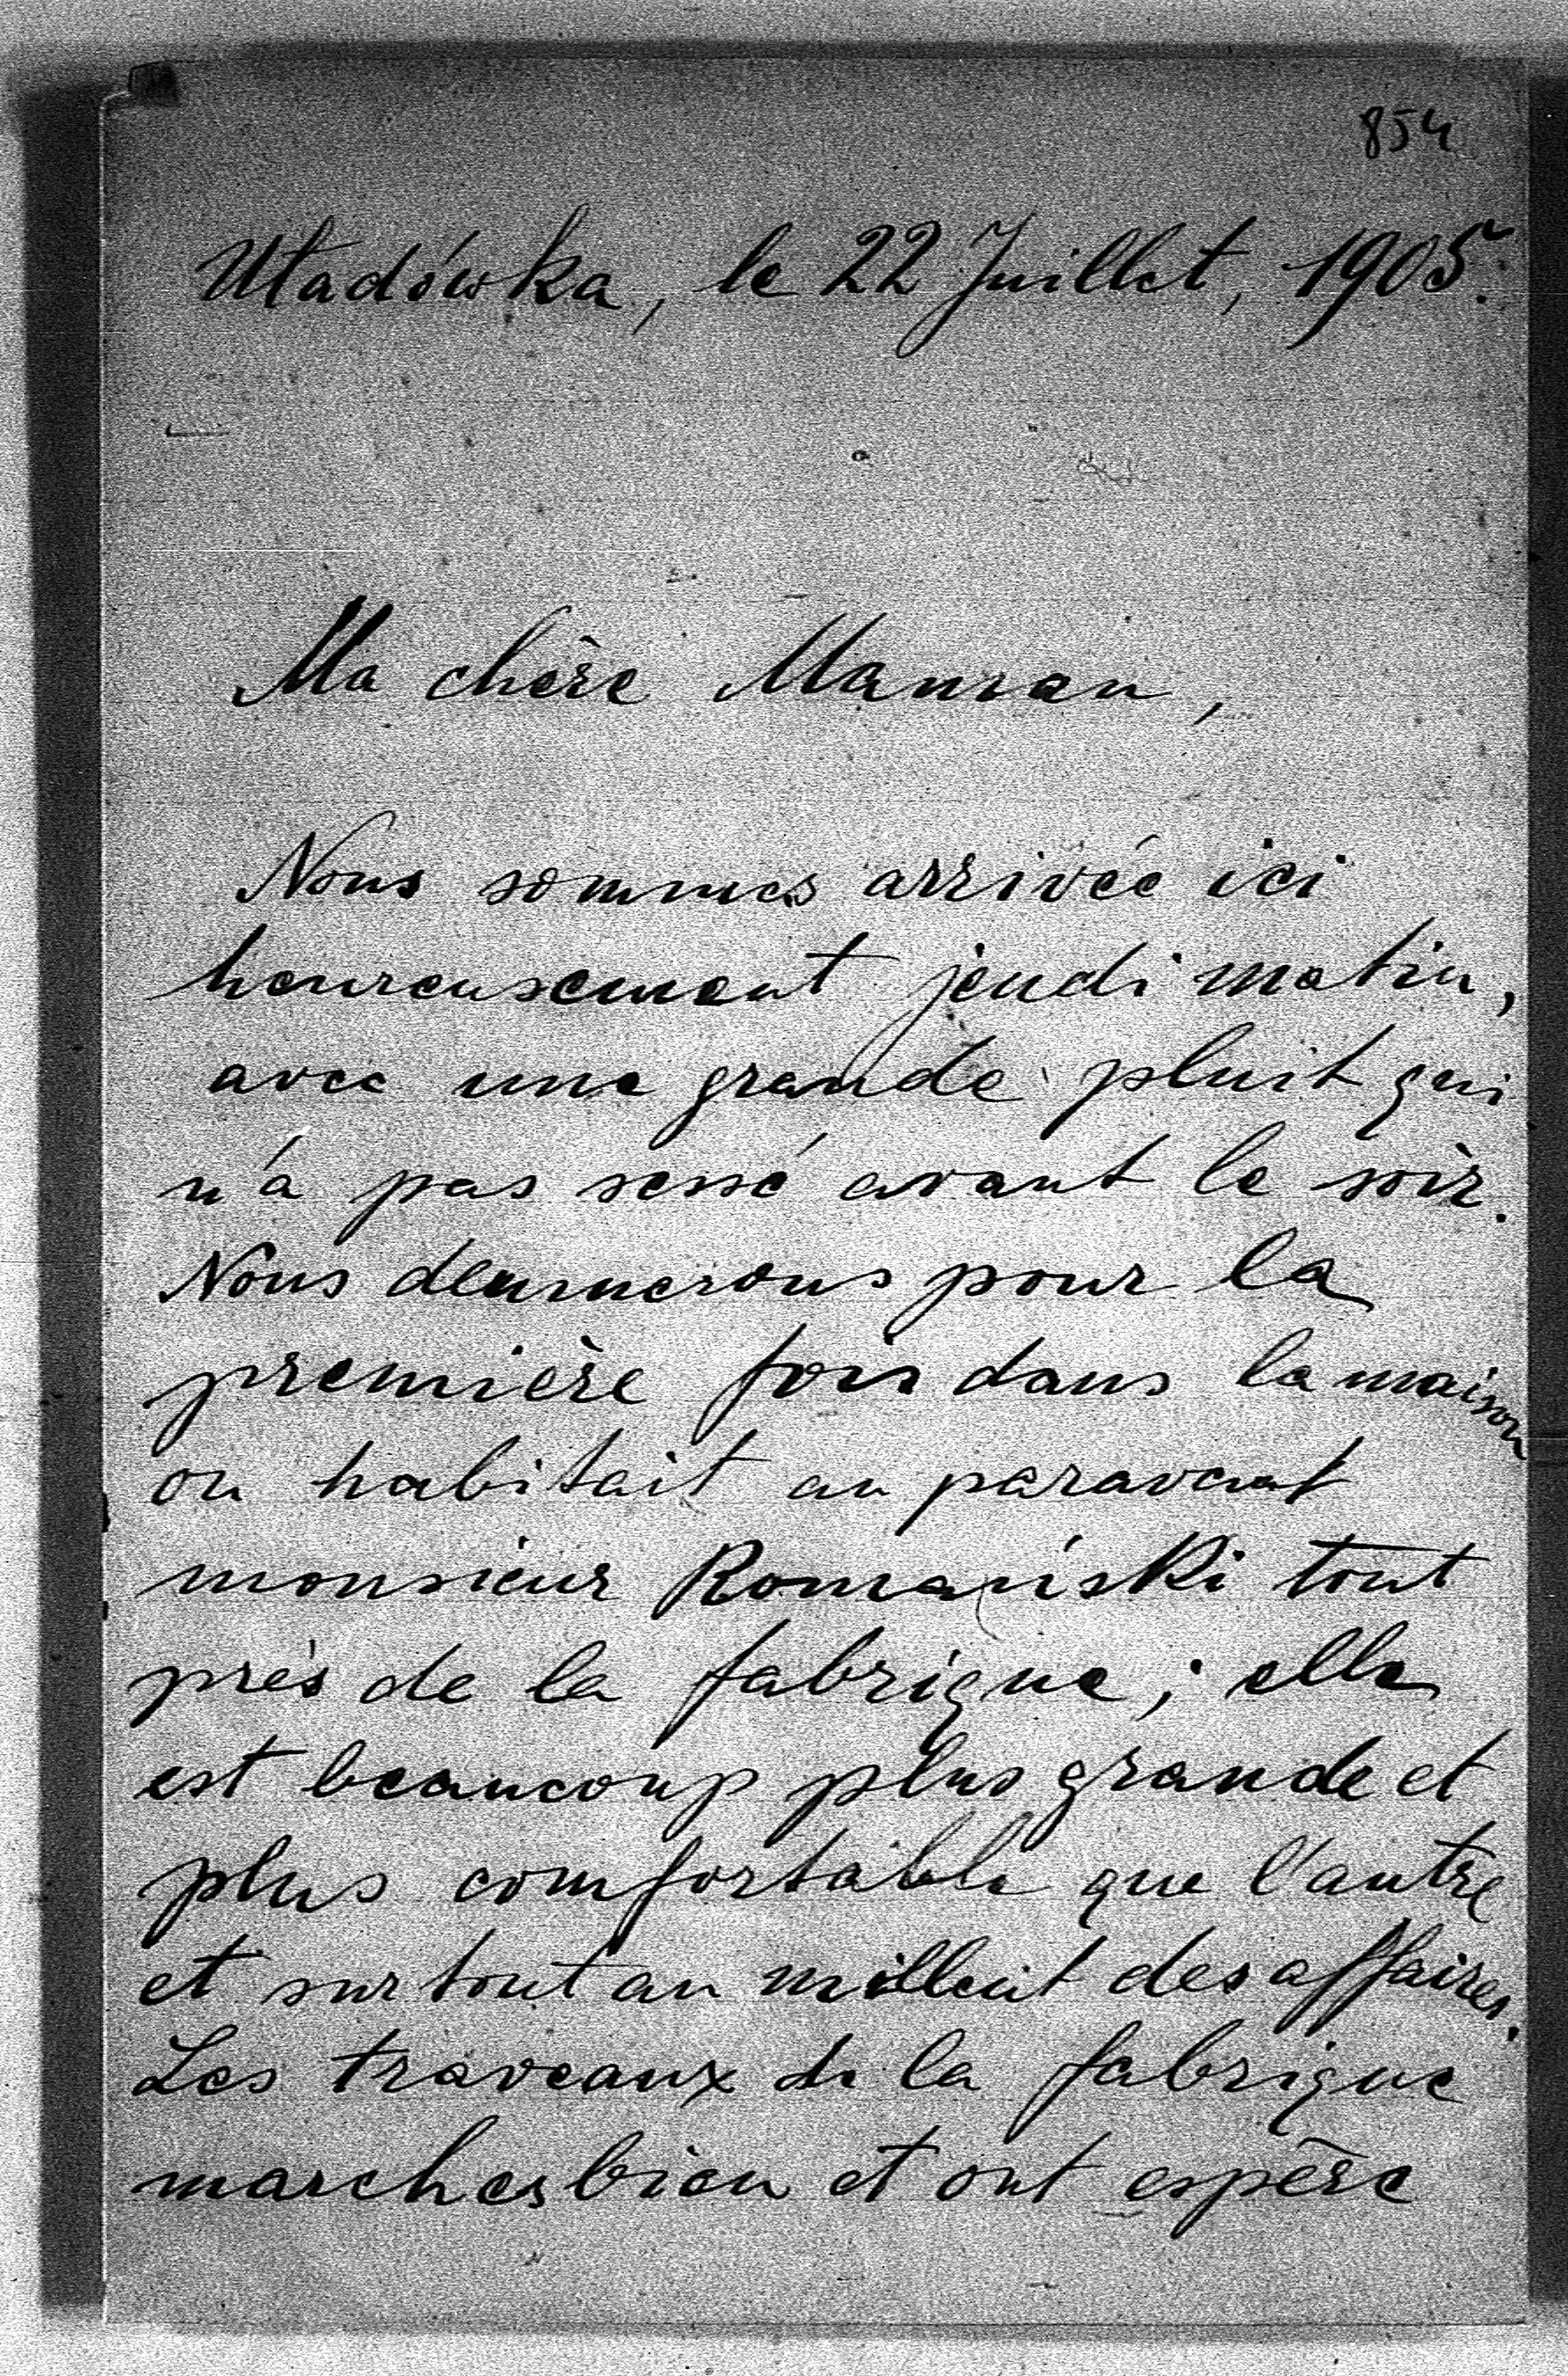 854
Uładówka, le 22 Juillet, 1905.
Ma chère Maman,
Nous sommes arrivée ici
heureusement jeudi matin,
avec une grande pluit qui
n'a pas sessé avant le soir.
Nous demmerons pour la
première fois dans la maison
ou habitait au paravant
monsieur Romański tout
près de la fabrique; elle
est beaucoup plus grande et
plus comfortable que l'autre
et surtout au milleut des affaires.
Les traveaux de la fabrique
marches bien et ont espère